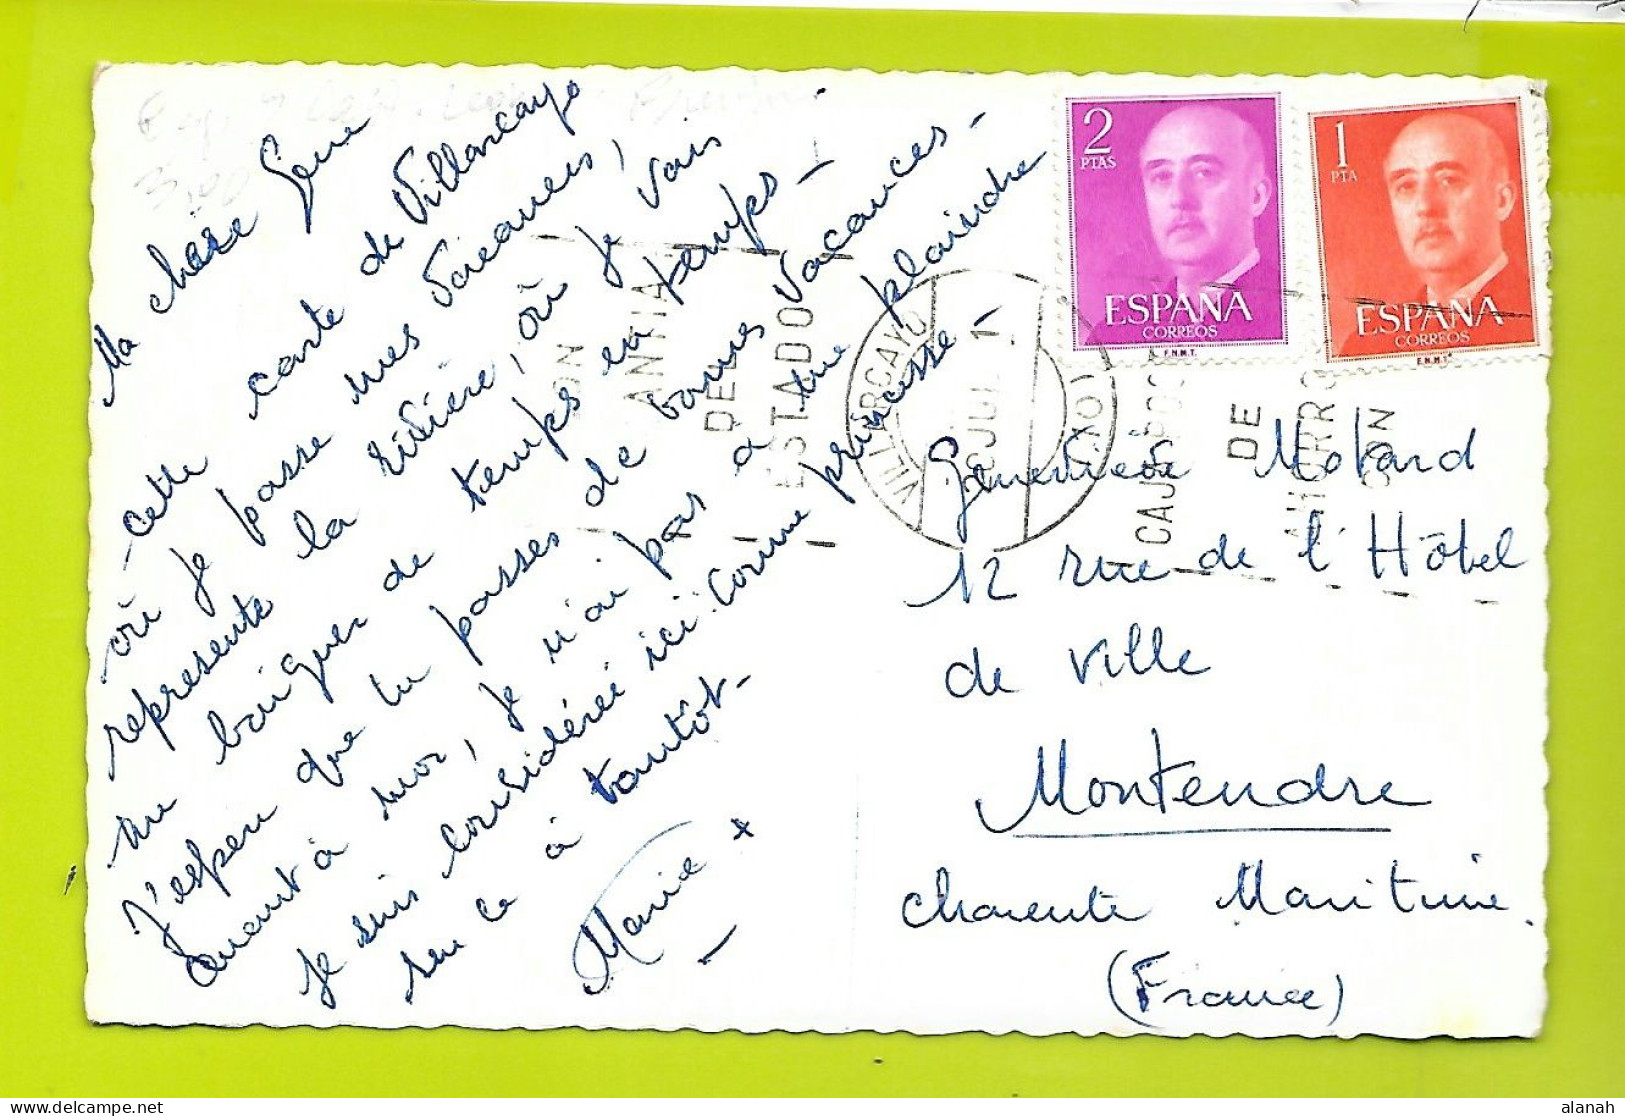 Ma chère Gene
cette carte de Villarcayo
où je passe mes vacances,
represente la rivière, où je vais
me baigner de temps en temps –
J'espere que tu passes de bonnes vacances –
Quant à moi, je n'ai pas à me plaindre
je suis considérée ici comme princesse –
sur ce à tantôt –
Marie x
2
PTAS
ESPAÑA
CORREOS
F.N.M.T.
1
PTA
ESPAÑA
CORREOS
F.N.M.T.
VILLARCAYO
JUL
DEL
ESTADO
CAJA
DE
Genevieve Motard
12 rue de l'Hôtel
de ville
Montendre
Charente Maritime.
(France)
3,00
alanah